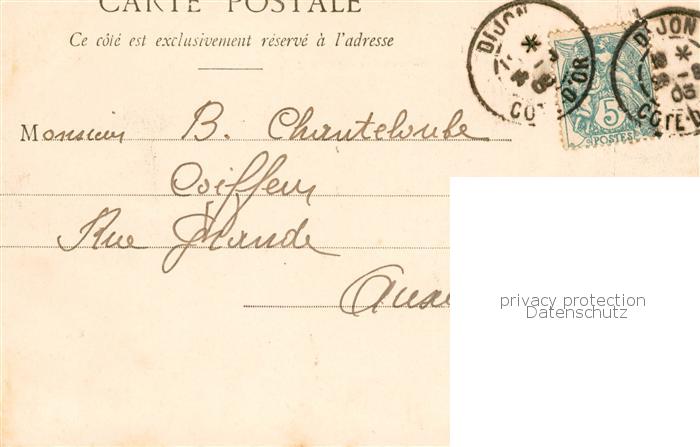 CARTE POSTALE
Ce côté est exclusivement réservé à l'adresse
DIJON
COTE D'OR
5
POSTES
DIJON
03
COTE D
Monsieur B. Chanteloube
Coiffeur
Rue Grande
privacy protection
Datenschutz